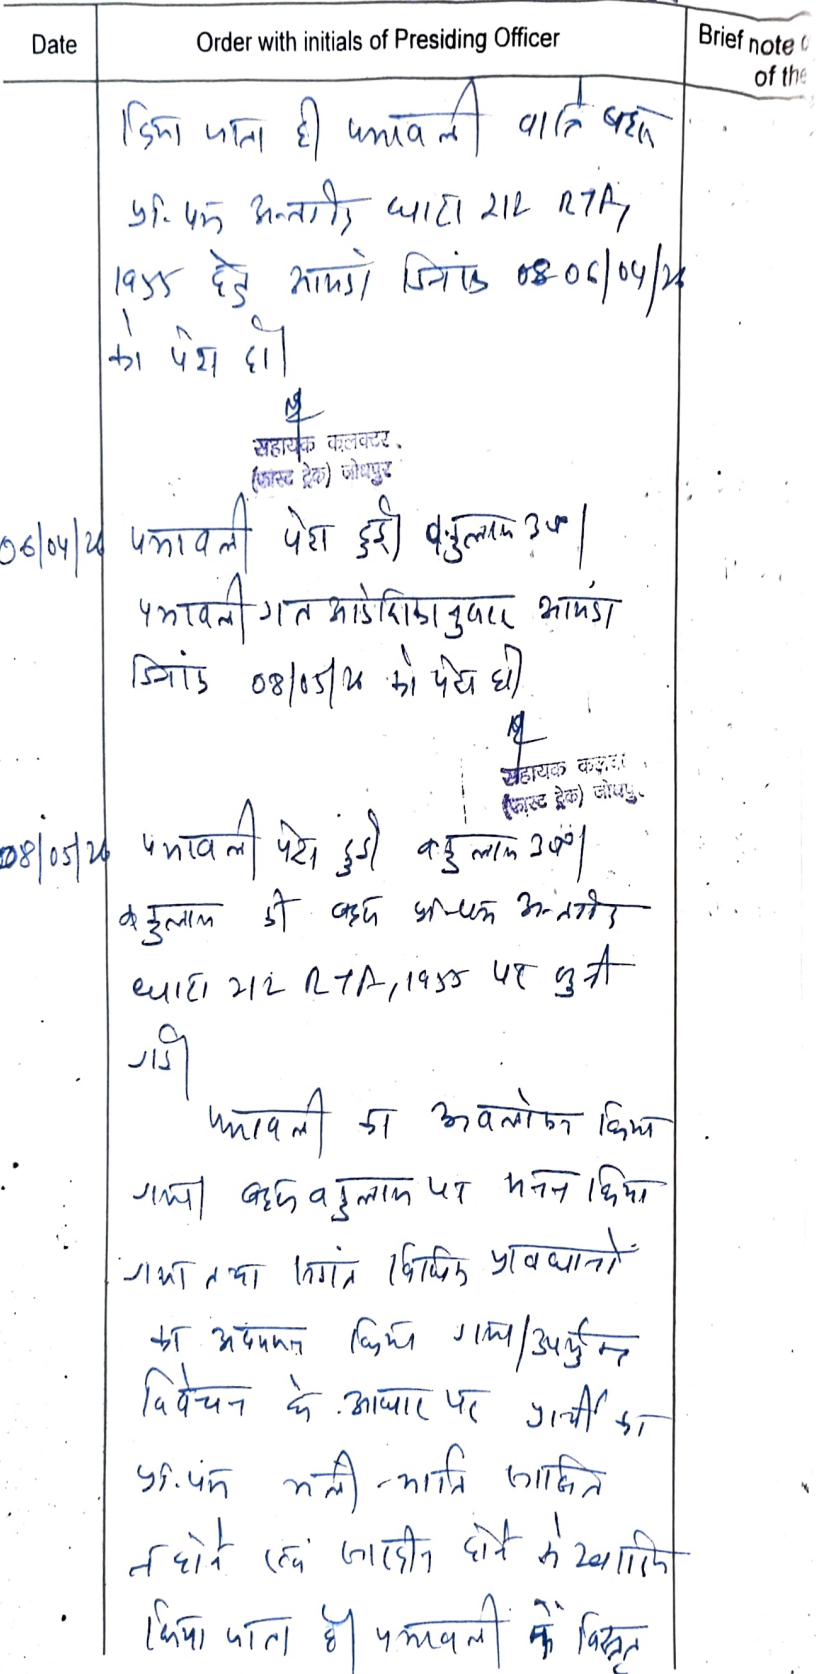 Date
Order with initials of Presiding Officer
Brief note
of the
किया जाता है। पत्रावली वास्ते बहस
प्रा. पत्र अन्तर्गत धारा 212 RTA,
1955 हेतु आगामी दिनांक 08 06/04/26
को पेश हो।
सहायक कलक्टर.
(फास्ट ट्रेक) जोधपुर
06/04/26 पत्रावली पेश हुई। वकुलाय उप०।
पत्रावली गत आदेशिकानुसार आगामी
दिनांक 08/05/26 को पेश हो।
सहायक
(फास्ट ट्रेक) जोधपु
08/05/26 पत्रावली पेश हुई। वकुलाय उप०।
वकुलाय की बहस प्रा. पत्र अन्तर्गत
धारा 212 RTA, 1955 पर सुनी
गई।
पत्रावली का अवलोकन किया
गया। बहस वकुलाय पर मनन किया
गया तथा विधिक प्रावधानों
का अध्ययन किया गया। उपर्युक्त
विवेचन के आधार पर प्रार्थी का
प्रा. पत्र भली-भांति साबित
न होने एवं सारहीन होने से खारिज
किया जाता है। पत्रावली के विस्तृत